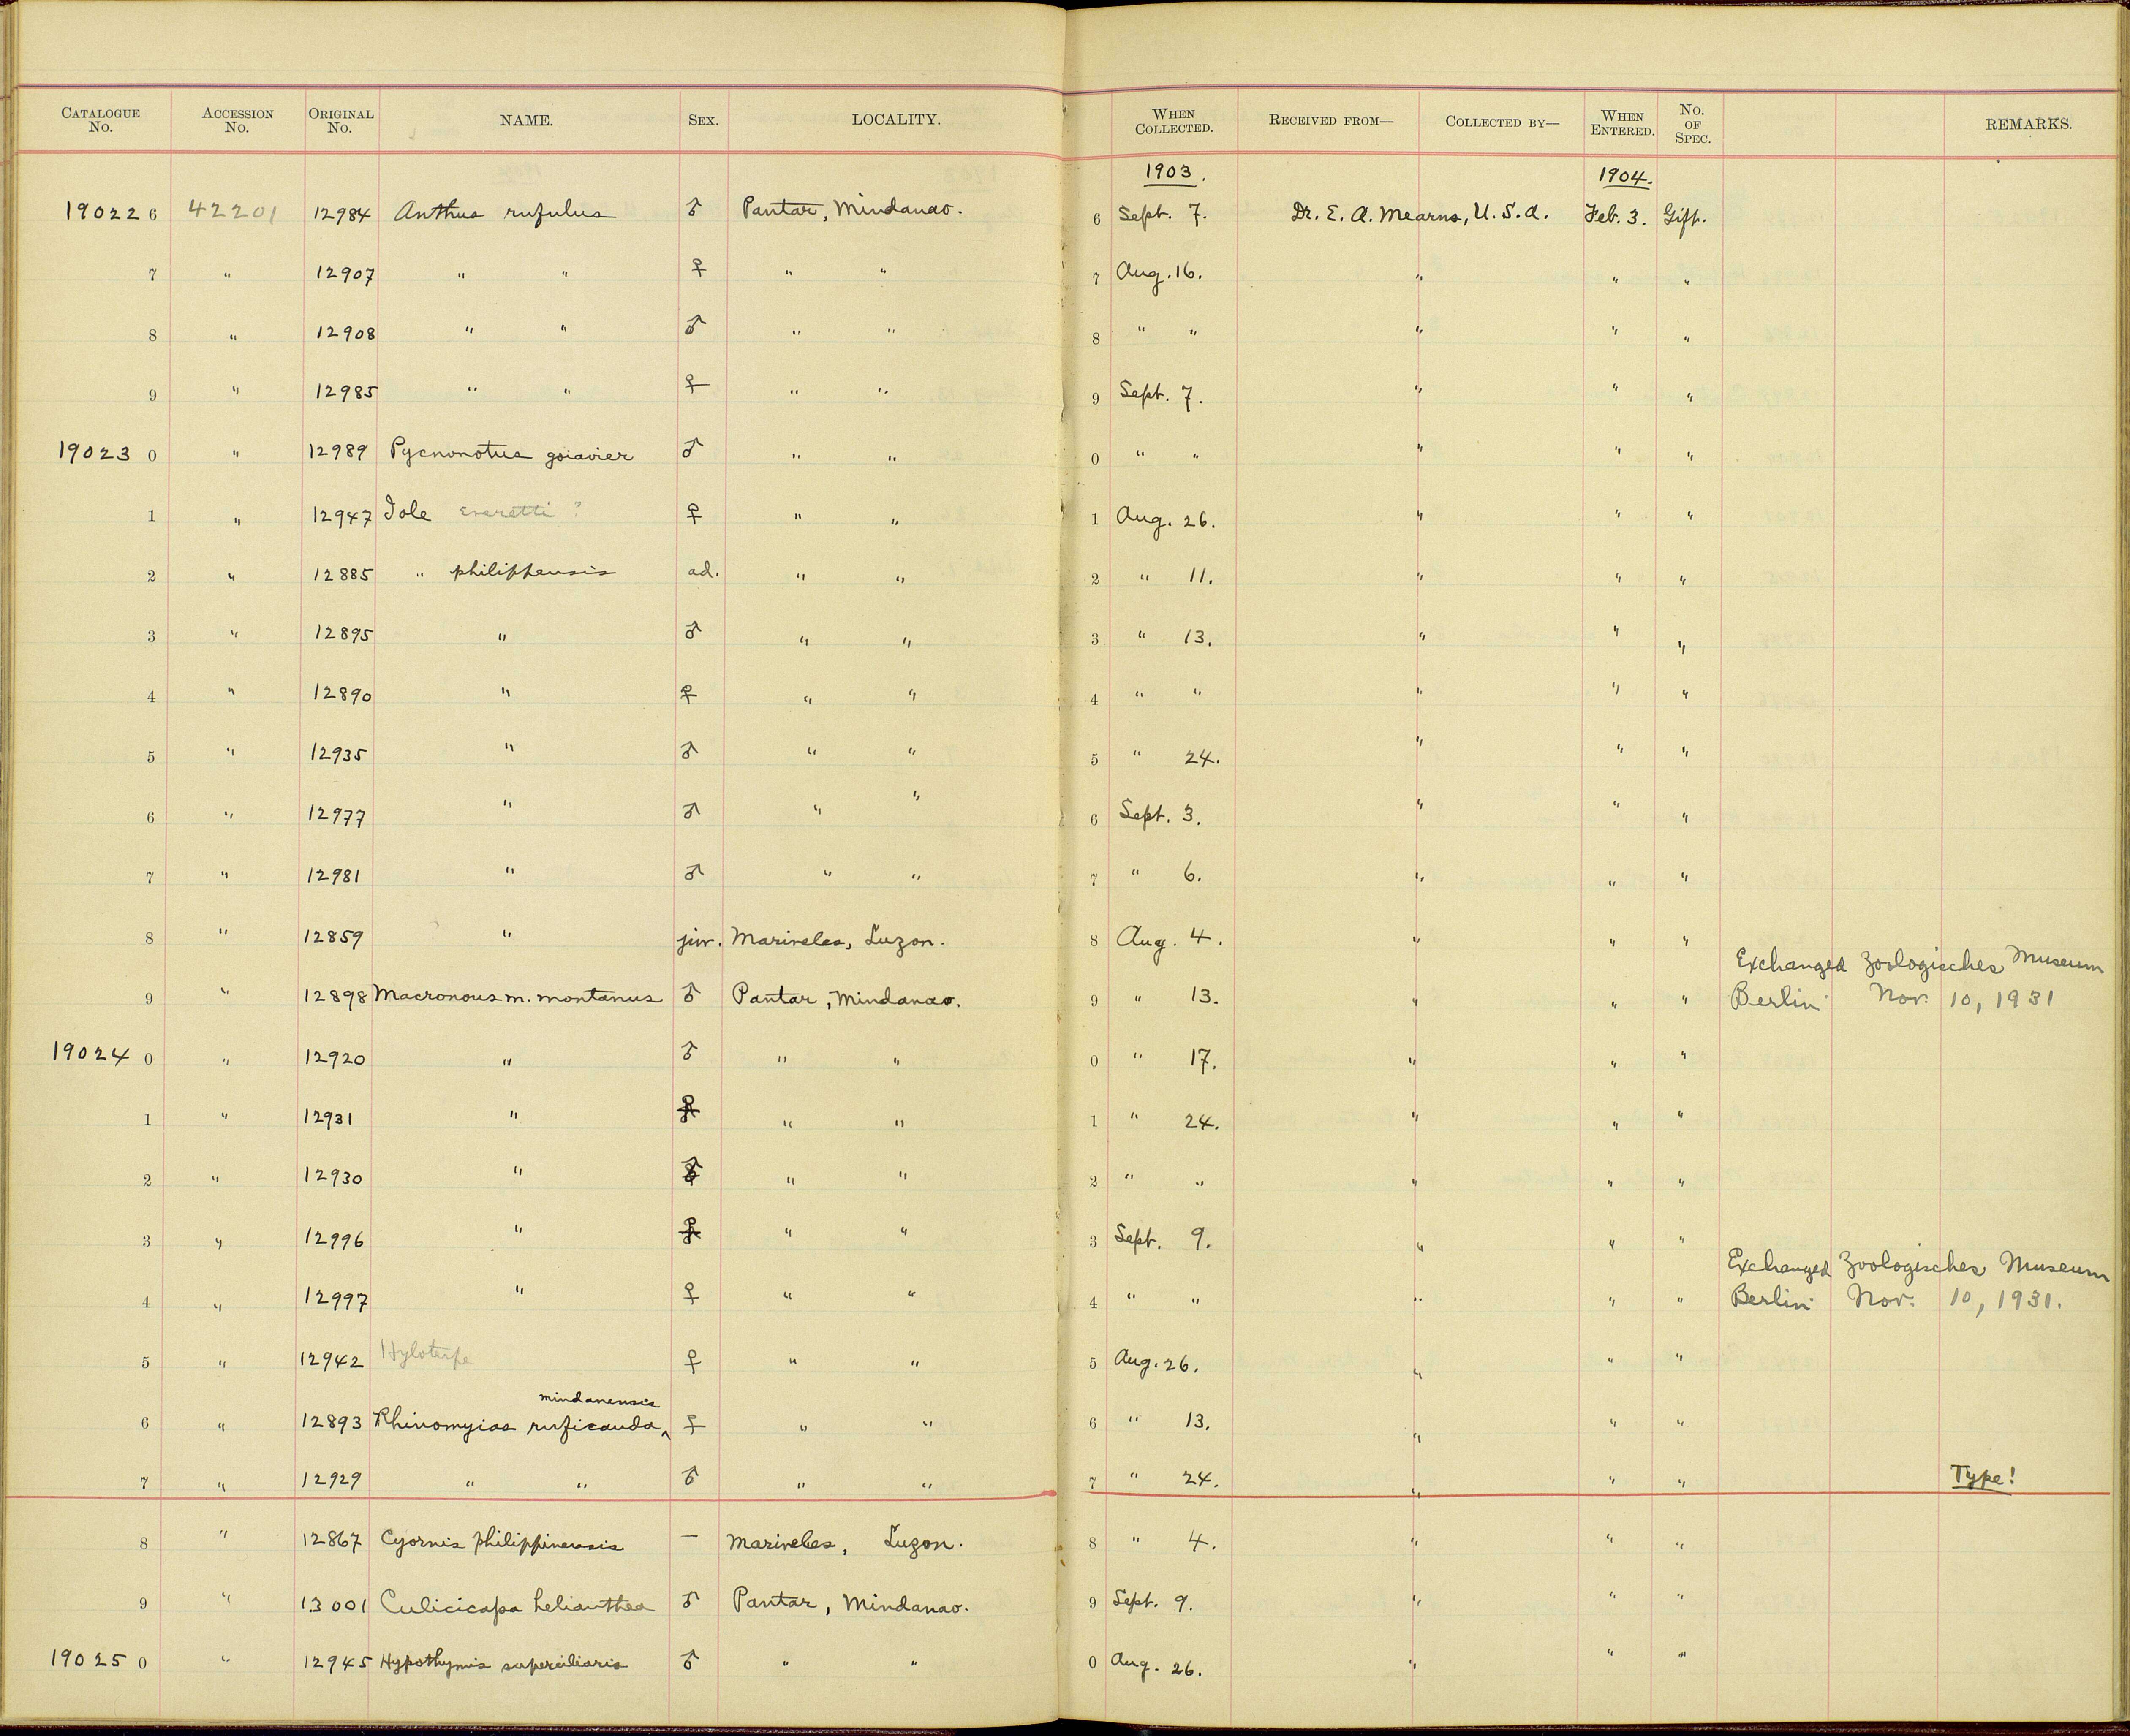 CATALOGUE No. ACCESSION No. ORIGINAL No. NAME. SEX. LOCALITY. WHEN COLLECTED. RECEIVED FROM— COLLECTED BY— WHEN ENTERED. No. OF SPEC. REMARKS.
1903. 1904.
19022 6 42201 12984 Anthus rufulus ♂ Pantar, Mindanao. 6 Sept. 7. Dr. E. A. Mearns, U. S. A. Feb. 3. Gift.
7 " 12907 " " ♀ " " 7 Aug. 16. " " "
8 " 12908 " " ♂ " " 8 " " " " "
9 " 12985 " " ♀ " " 9 Sept. 7. " " "
19023 0 " 12989 Pycnonotus goiavier ♂ " " 0 " " " " "
1 " 12947 Iole everetti ? ♀ " " 1 Aug. 26. " " "
2 " 12885 " philippensis ad. " " 2 " 11. " " "
3 " 12895 " ♂ " " 3 " 13. " " "
4 " 12890 " ♀ " " 4 " " " " "
5 " 12935 " ♂ " " 5 " 24. " " "
6 " 12977 " ♂ " " 6 Sept. 3. " " "
7 " 12981 " ♂ " " 7 " 6. " " "
8 " 12859 " juv. Mariveles, Luzon. 8 Aug. 4. " " "
Exchanged Zoologisches Museum
9 " 12898 Macronous m. montanus ♂ Pantar, Mindanao. 9 " 13. " " " Berlin Nov. 10, 1931
19024 0 " 12920 " ♂ " " 0 " 17. " " "
1 " 12931 " ♀ " " 1 " 24. " " "
2 " 12930 " ♂ " " 2 " " " " "
3 " 12996 " ♀ " " 3 Sept. 9. " " "
Exchanged Zoologisches Museum
4 " 12997 " ♀ " " 4 " " " " " Berlin Nov. 10, 1931.
5 " 12942 Hyloterpe ♀ " " 5 Aug. 26. " " "
mindanensis
6 " 12893 Rhinomyias ruficauda ‸ ♀ " " 6 " 13. " " "
7 " 12929 " " ♂ " " 7 " 24. " " " Type!
8 " 12867 Cyornis philippinensis — Mariveles, Luzon. 8 " 4. " " "
9 " 13001 Culicicapa helianthea ♂ Pantar, Mindanao. 9 Sept. 9. " " "
19025 0 " 12945 Hypothymis superciliaris ♂ " " 0 Aug. 26. " " "